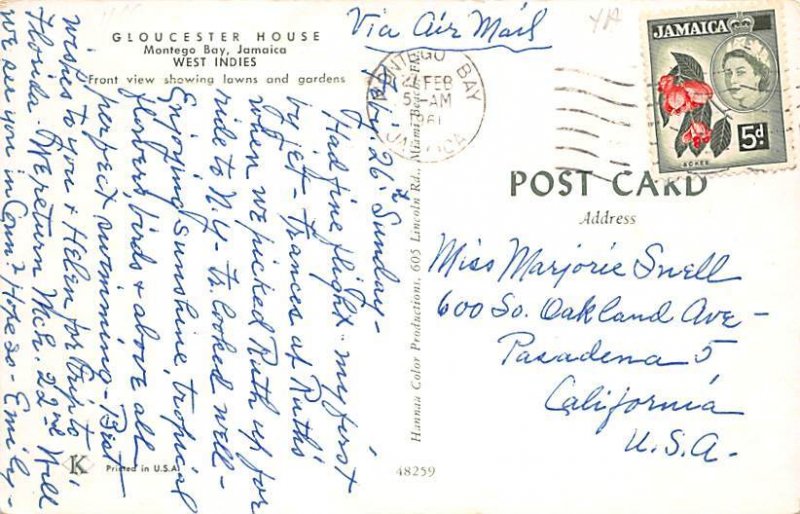 GLOUCESTER HOUSE
Montego Bay, Jamaica
WEST INDIES
Front view showing lawns and gardens
Via Air Mail
MONTEGO BAY
27 FEB
5 - AM
1961
JAMAICA
JAMAICA
5d
ACKEE
Feby 26th Sunday -
Had fine flight - my first
by jet - Frances at Ruth's
when we picked Ruth up for
ride to N.Y. - looked well -
Enjoying sunshine, tropical
flowers, birds & above all
perfect swimming - Best
wishes to you & Helen for trip to
Florida - We return Mch. 22nd Will
we see you in Conn? Hope so - Emily -
Hannau Color Productions, 605 Lincoln Rd., Miami Beach, Fla.
POST CARD
Address
Miss Marjorie Snell
600 So. Oakland Ave -
Pasadena 5
California
U.S.A.
K
Printed in U.S.A.
48259